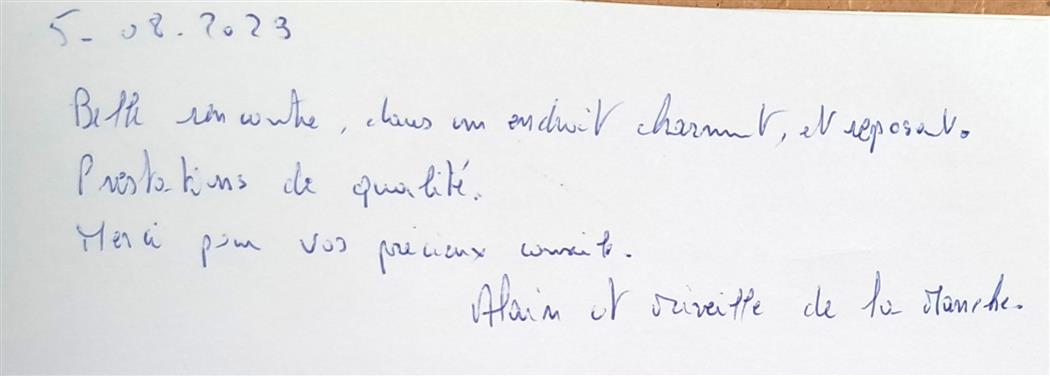 5-08.2023
Belle rencontre, dans un endroit charmant, et reposant.
Prestations de qualité.
Merci pour vos précieux conseils.
Alain et Mireille de la Manche.